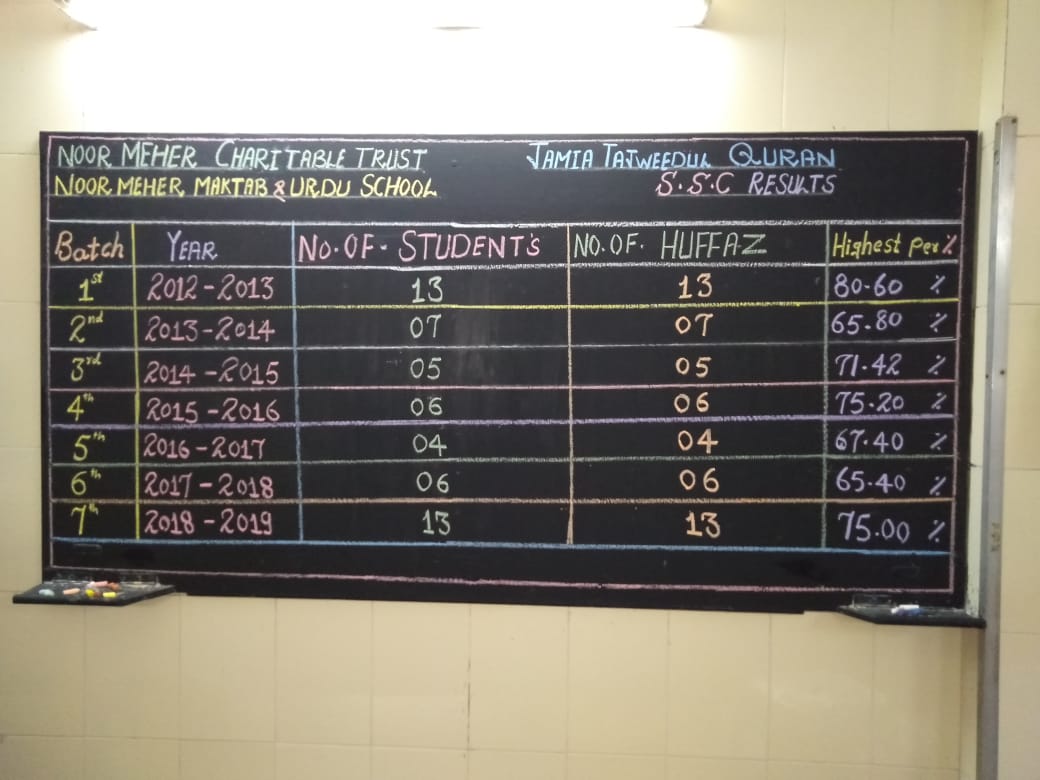 NOOR MEHER CHARITABLE TRUST JAMIA TAJWEEDUL QURAN
NOOR MEHER MAKTAB & URDU SCHOOL S.S.C RESULTS
Batch YEAR NO. OF. STUDENT'S NO. OF. HUFFAZ Highest Per %
1st 2012-2013 13 13 80.60 %
2nd 2013-2014 07 07 65.80 %
3rd 2014-2015 05 05 71.42 %
4th 2015-2016 06 06 75.20 %
5th 2016-2017 04 04 67.40 %
6th 2017-2018 06 06 65.40 %
7th 2018-2019 13 13 75.00 %